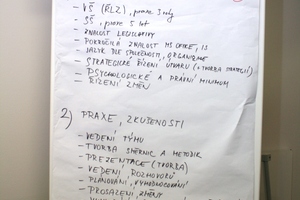 - VŠ (ŘLZ), praxe 3 roky
- SŠ, praxe 5 let
- ZNALOST LEGISLATIVY
- POKROČILÁ ZNALOST MS OFFICE, IS
- JAZYK DLE SPOLEČNOSTI, ORGANIZACE
- STRATEGICKÉ ŘÍZENÍ ÚTVARU (+ TVORBA STRATEGIÍ)
- PSYCHOLOGICKÉ A PRÁVNÍ MINIMUM
- ŘÍZENÍ ZMĚN
2) PRAXE, ZKUŠENOSTI
- VEDENÍ TÝMU
- TVORBA SMĚRNIC A METODIK
- PREZENTACE (TVORBA)
- VEDENÍ ROZHOVORŮ
- PLÁNOVÁNÍ, VYHODNOCOVÁNÍ
- PROSAZENÍ ZMĚNY